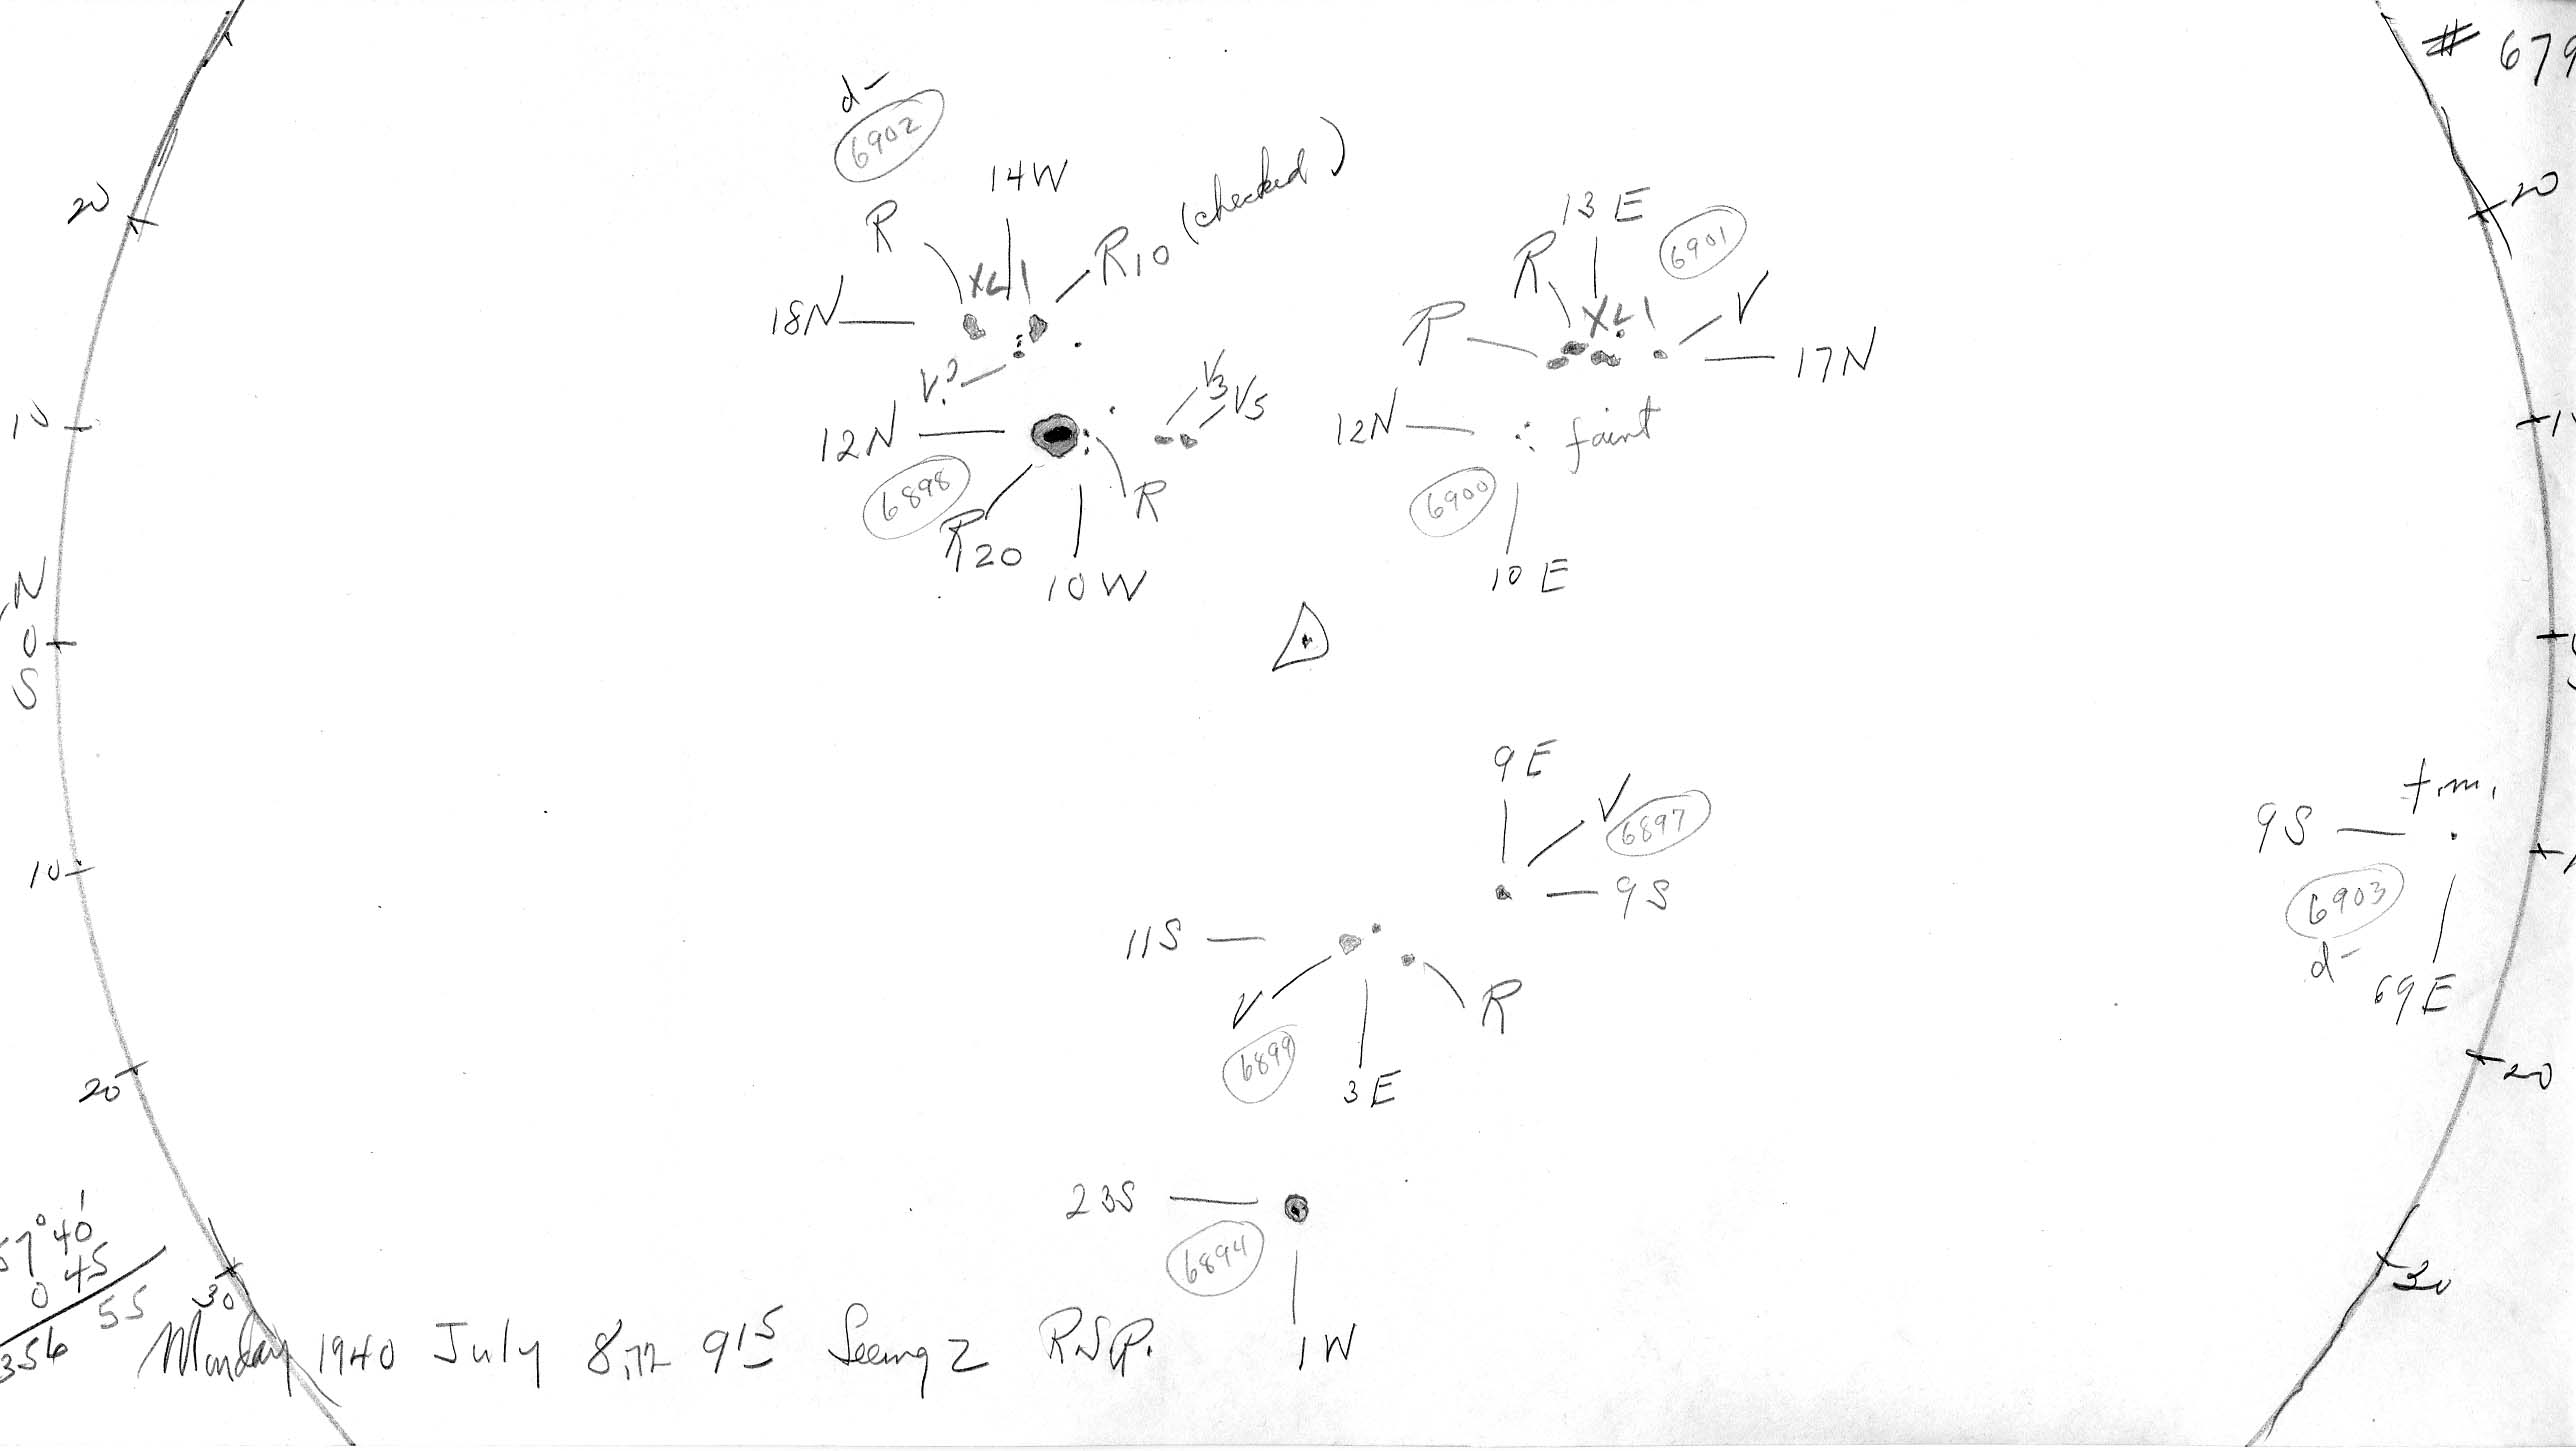 # 679
d-
6902
14W
R
R10 (checked)
XL1
18N
V?
20
13 E
6901
R
R
XL1
V
17N
20
V3
V5
12N
6898
R20
R
10W
10
12N
faint
6900
10 E
N
0
S
9E
V
6897
9S
f.m.
9S
6903
d-
69E
10
11S
V
R
6899
3E
20
20
23S
6894
1W
57°40'
0 45
356 55
30
30
Monday 1940 July 8.72 9 15 Seeing 2 R.S.R.